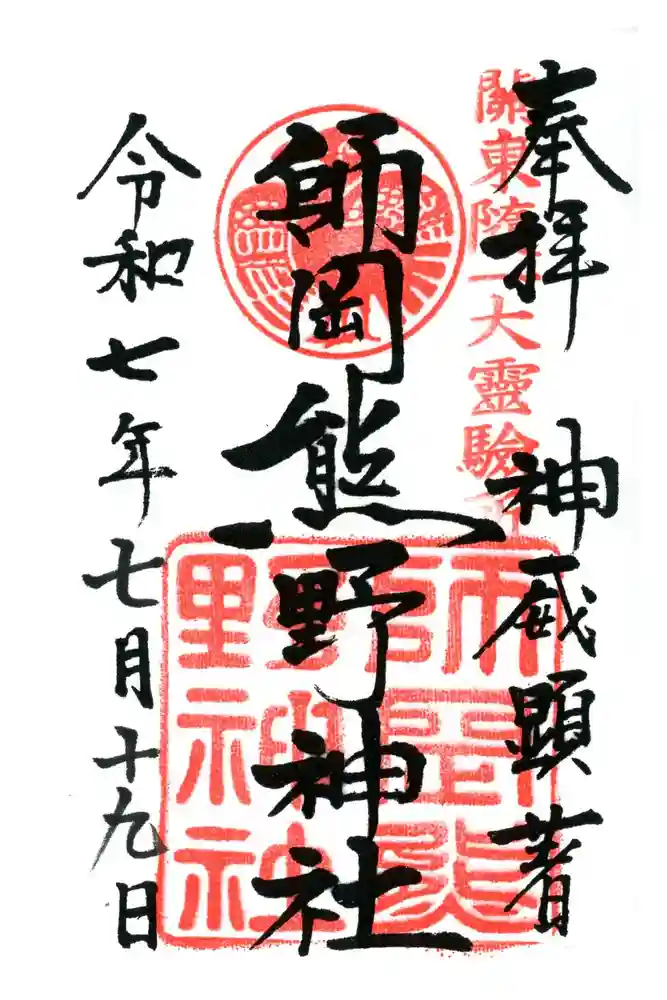 奉拝
關東隨一大靈驗所
神威顕著
師岡熊野神社
師岡熊野神社
令和七年七月十九日